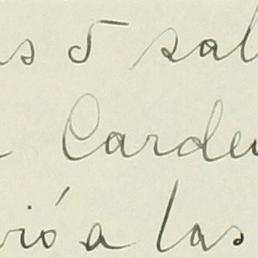 as 5 sal
Carde
vió a las